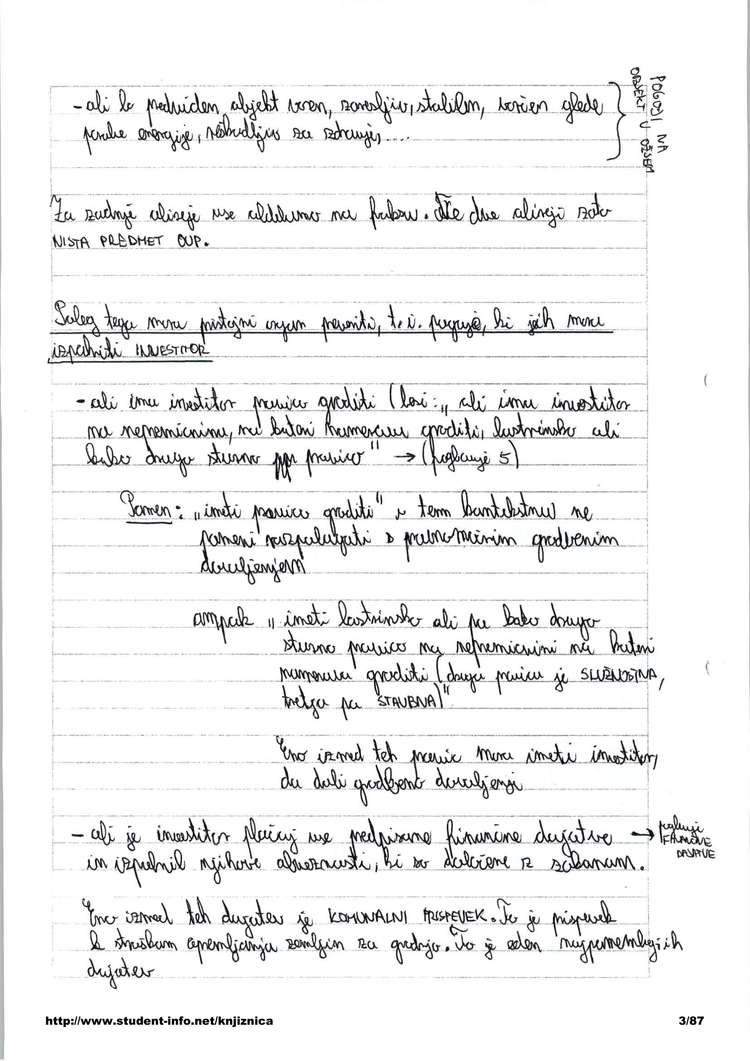 - ali bo predviden objekt varen, zanesljiv, stabilen, varčen glede
porabe energije, neškodljiv za zdravje, ....
POGOJI NA
OBJEKT V OŽJEM
Za zadnji alineji vse oddelamo na faksu. Te dve alineji zato
NISTA PREDMET OUP.
Poleg tega mora pristojni organ preveriti, t. i. pogoje, ki jih mora
izpolniti INVESTITOR
- ali ima investitor pravico graditi (beri: „ ali ima investitor
na nepremičnini, na kateri namerava graditi, lastninsko ali
kako drugo stvarno pravico" → (poglavje 5)
Pomen: „imeti pravico graditi" v tem kontekstu ne
pomeni razpolagati s pravnomočnim gradbenim
dovoljenjem
ampak „ imeti lastninsko ali pa kako drugo
stvarno pravico na nepremičnini na kateri
namerava graditi (druga pravica je SLUŽNOSTNA,
tretja pa STAVBNA)"
Eno izmed teh pravic mora imeti investitor,
da dobi gradbeno dovoljenje
- ali je investitor plačal vse predpisane finančne dajatve →
poglavje
FINANČNE
DAJATVE
in izpolnil njihove obveznosti, ki so določene z zakonom.
Eno izmed teh dajatev je KOMUNALNI PRISPEVEK. To je prispevek
k stroškom opremljanja zemljišč za gradnjo. To je eden najpomembnejših
dajatev
http://www.student-info.net/knjiznica
3/87